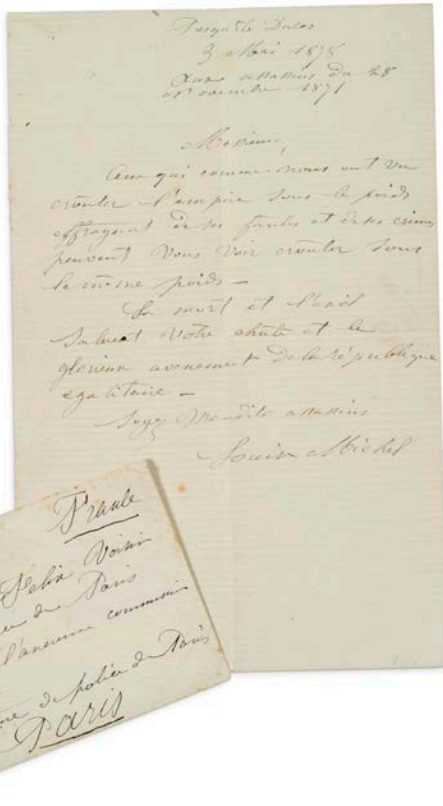 Presqu'île Ducos
3 Mai 1878
Aux assassins du 28
novembre 1871
Messieurs,
Ceux qui comme nous ont vu
crouler l'empire sous le poids
effrayant de ses fautes et de ses crimes
peuvent vous voir crouler sous
le même poids —
La mort et l'exil
saluent votre chute et le
glorieux avènement de la république
égalitaire —
Soyez Maudits assassins
Louise Michel
France
Felix Voisin
de Paris
l'ancienne commission
de police de Paris
Paris